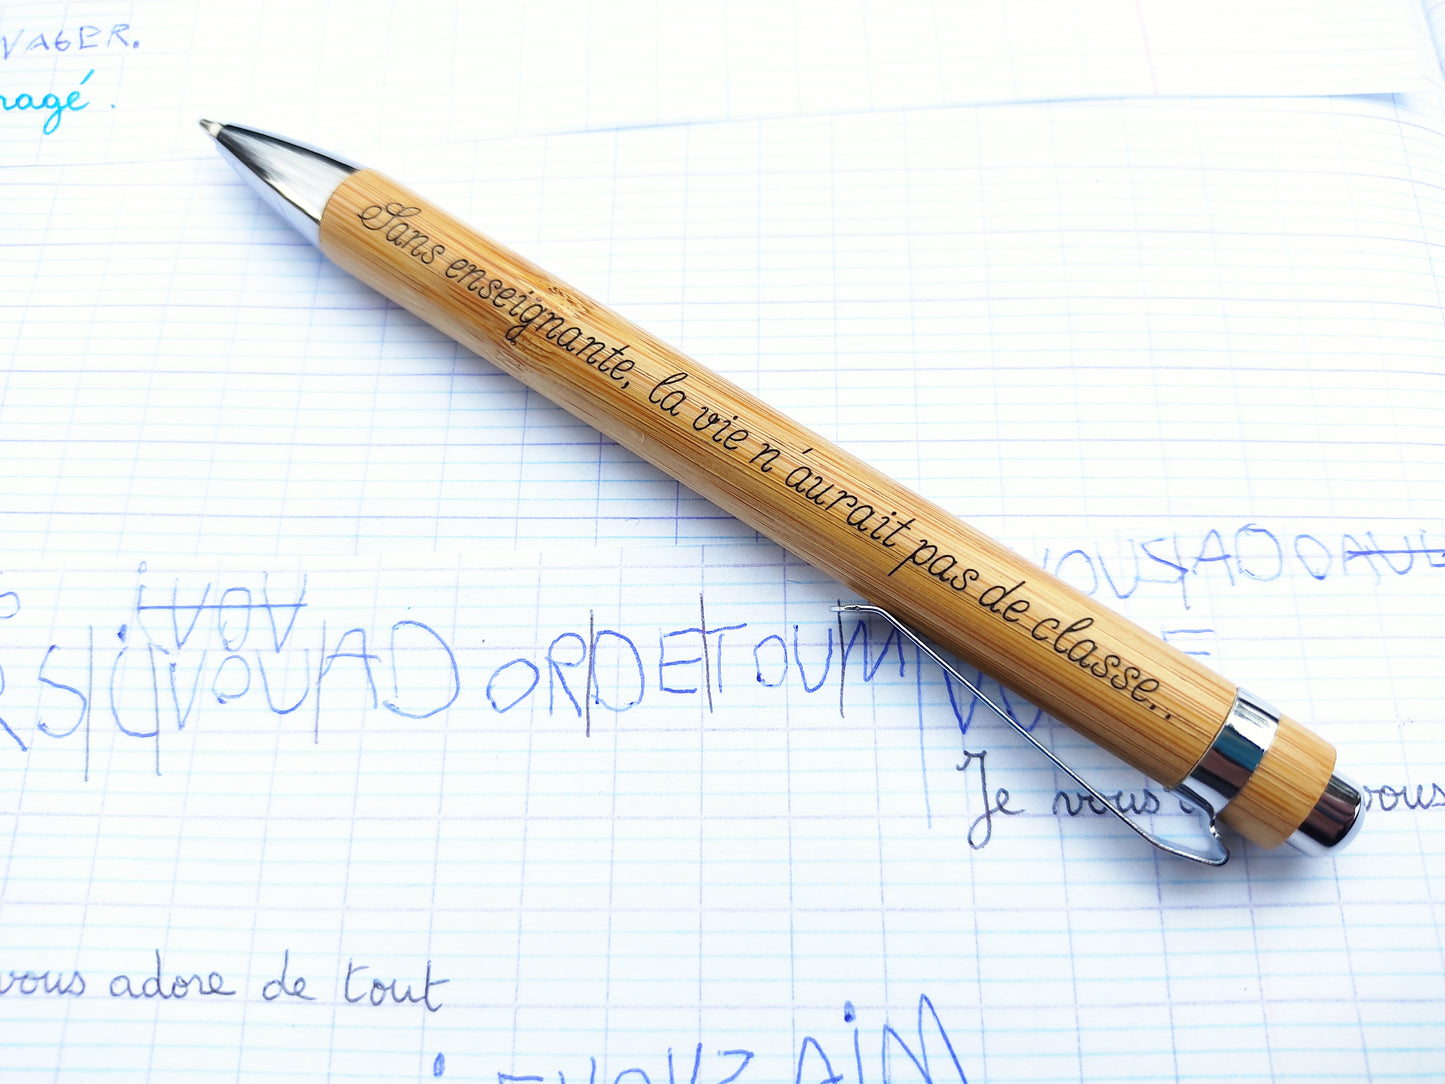 VAGER.
ragé.
Sans enseignante, la vie n'aurait pas de classe..
VOUSADO
VOU
RS|U|VOU|AD ORDETOUM
Je vous vous
vous adore de tout
VOUZ AIM